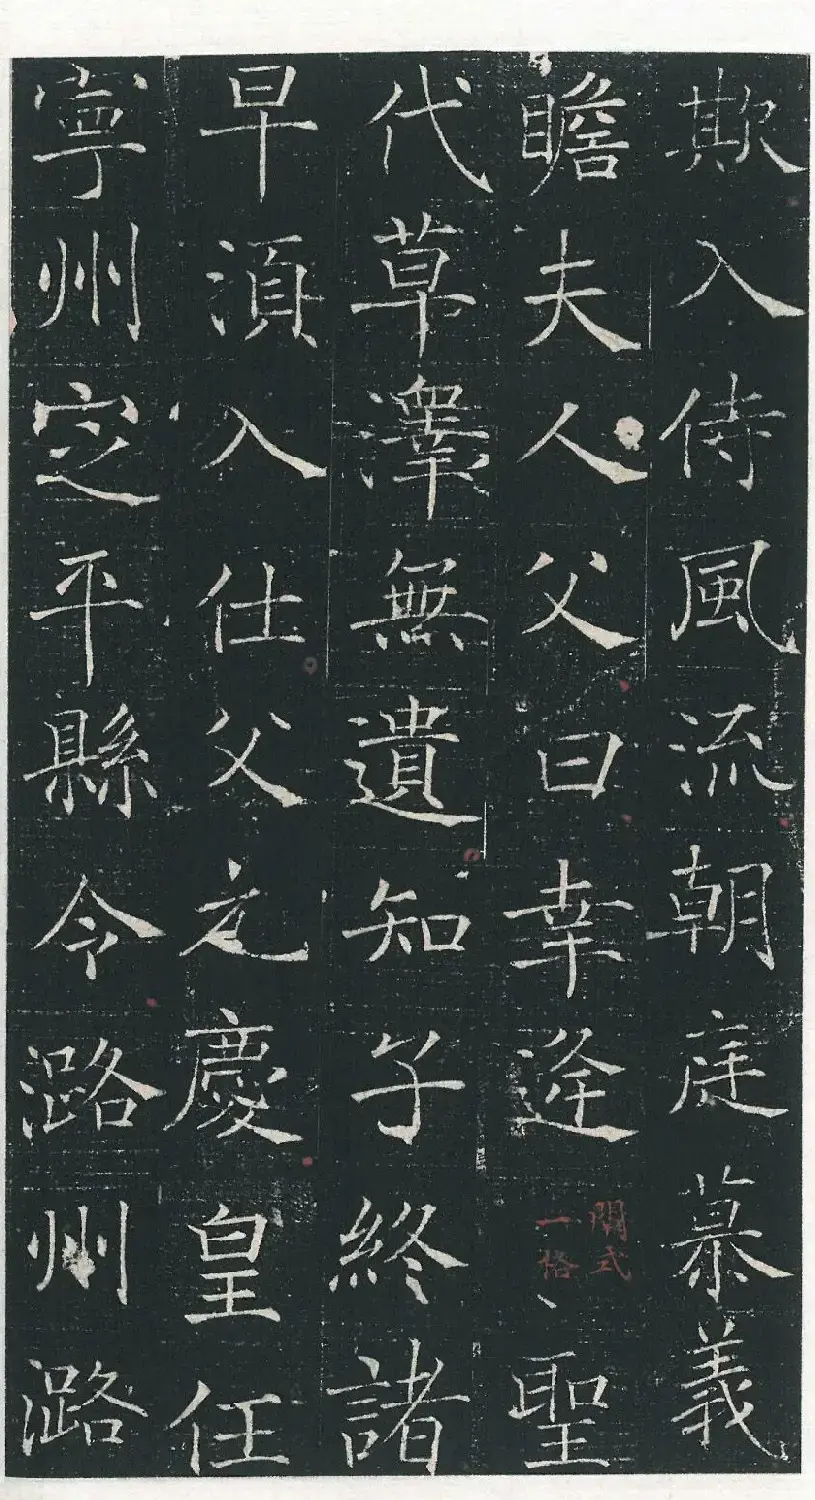 欺入侍風流朝庭慕義
瞻夫人父曰幸逢聖
一格
代草澤無遺知子終諸
早湏入仕父之慶皇任
寧州定平縣令潞州潞